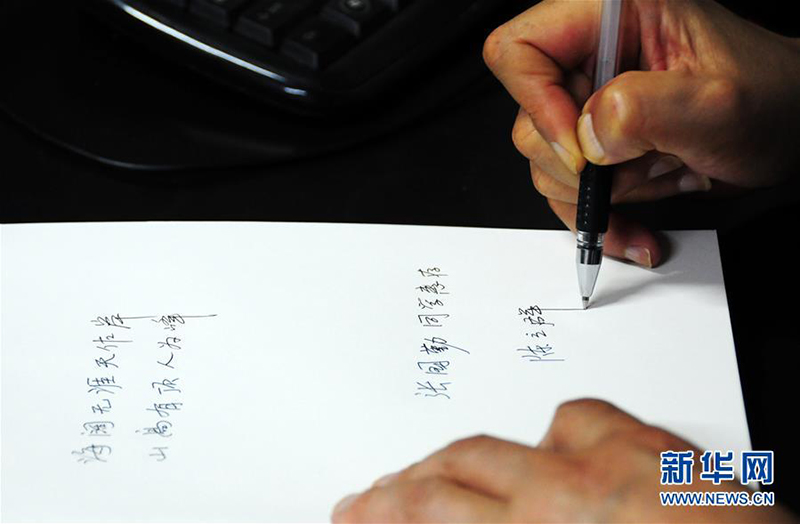 海阔无涯天作岸
山高有顶人为峰
张国勤同学惠存
陈立强
新华网
WWW.NEWS.CN